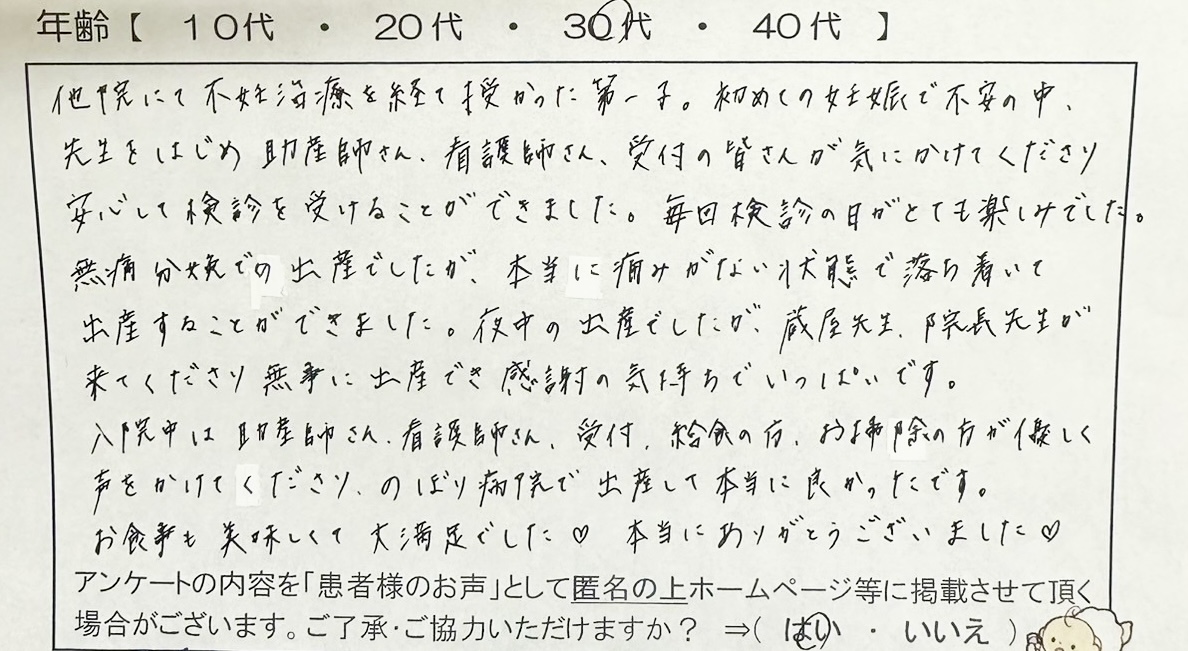 年齢【 10代 ・ 20代 ・ 30代 ・ 40代 】
他院にて不妊治療を経て授かった第一子。初めての妊娠で不安の中、
先生をはじめ助産師さん、看護師さん、受付の皆さんが気にかけてくださり
安心して検診を受けることができました。毎回検診の日がとても楽しみでした。
無痛分娩での出産でしたが、本当に痛みがない状態で落ち着いて
出産することができました。夜中の出産でしたが、蔵屋先生、院長先生が
来てくださり無事に出産でき感謝の気持ちでいっぱいです。
入院中は助産師さん、看護師さん、受付、給食の方、お掃除の方が優しく
声をかけてくださり、のぼり病院で出産して本当に良かったです。
お食事も美味しくて大満足でした♡ 本当にありがとうございました♡
アンケートの内容を「患者様のお声」として匿名の上ホームページ等に掲載させて頂く
場合がございます。ご了承・ご協力いただけますか？ ⇒( はい ・ いいえ )